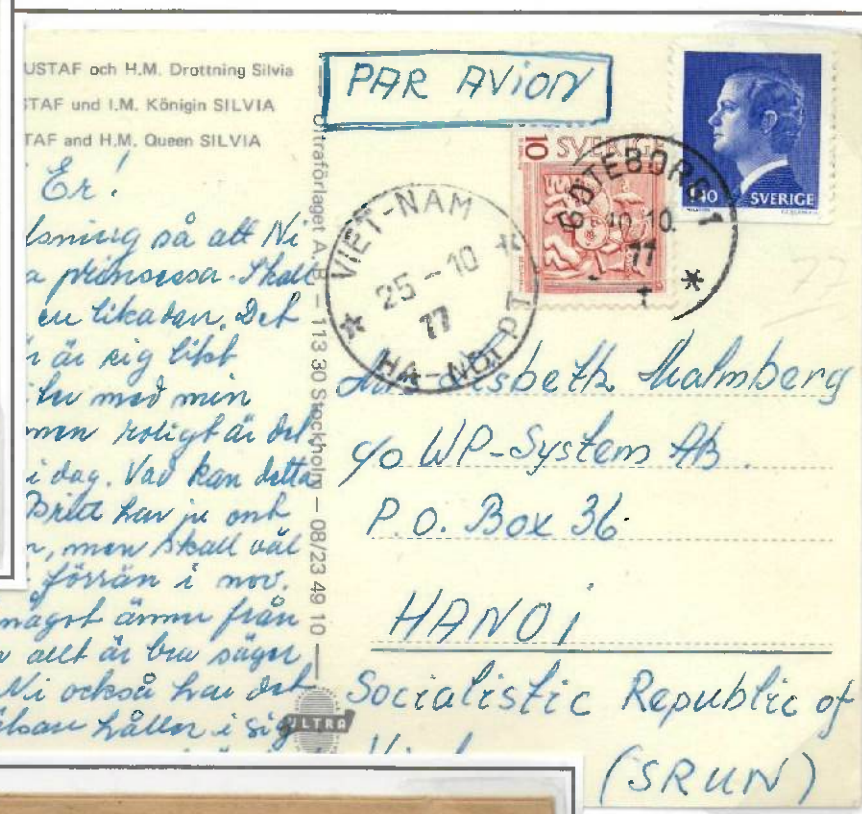 USTAF och H.M. Drottning Silvia
TAF und I.M. Königin SILVIA
TAF and H.M. Queen SILVIA
Er!
så att Ni
a prinsessa. Skall
en likadan. Det
är sig likt
med min
men roligt är det
i dag. Vad kan detta
Britt har ju ont
n, men skall väl
förrän i nov.
något ännu från
allt är bra säger
Ni också har det
håller i sig
Ultraförlaget A.B. – 113 30 Stockholm – 08/23 49 10
ULTRA
PAR AVION
10 SVERIGE
SVERIGE
GÖTEBORG 1
10.10.
77
VIET-NAM
25-10
77
HA-NOI PT
77
Lisbeth Malmberg
c/o WP-System AB.
P.O. Box 36.
HANOI
Socialistic Republic of
(SRUN)